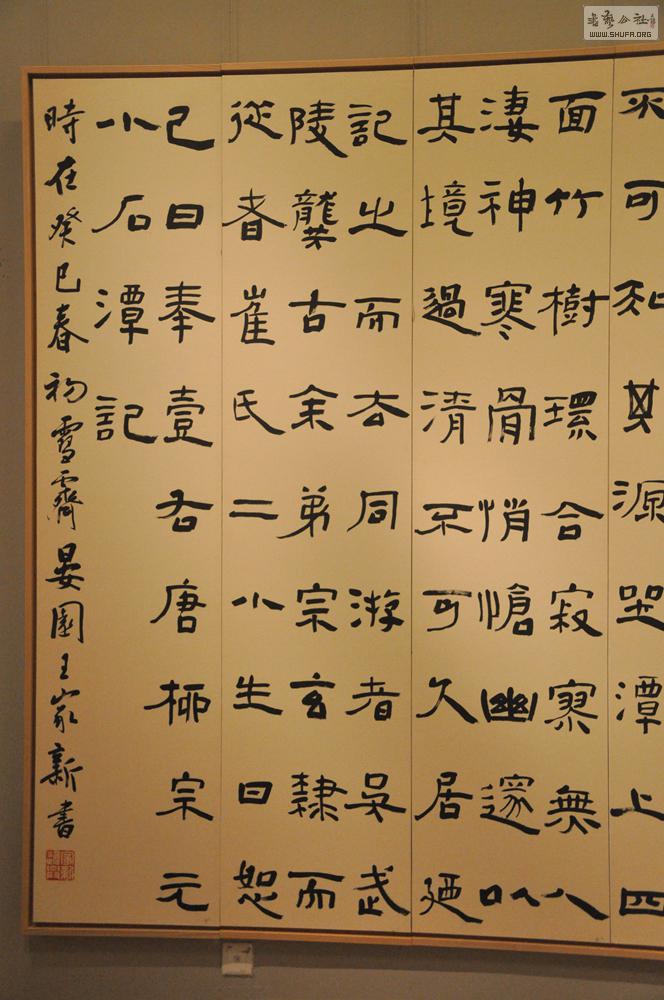 不可知其源坐潭上四
面竹樹環合寂寥無人
淒神寒骨悄愴幽邃以
其境過清不可久居廼
記之而去同游者吳武
陵龔古余弟宗玄隸而
從者崔氏二小生曰恕
己曰奉壹右唐柳宗元
小石潭記
時在癸巳春初雪霽晏園王家新書
WWW.SHUFA.ORG